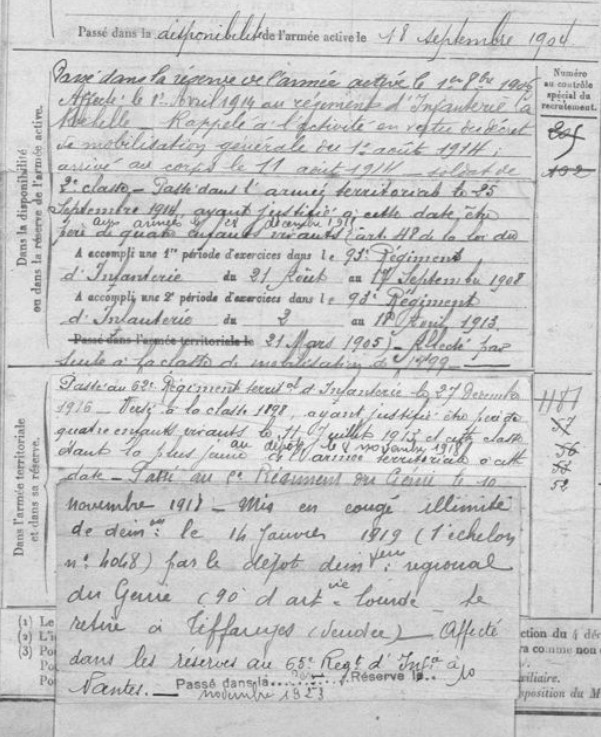 Passé dans la disponibilité de l'armée active le 18 septembre 1904
Numéro
au contrôle
spécial du
recrutement.
Dans la disponibilité
ou dans la réserve de l'armée active.
Passé dans la réserve de l'armée active le 1er 8bre 1906
Affecté le 1er Avril 1914 au régiment d'Infanterie La
Rochelle Rappelé à l'activité en vertu du décret
de mobilisation générale du 1er août 1914;
arrivé au corps le 11 août 1914 — soldat de
2e classe — Passé dans l'armée territoriale le 25
Septembre 1914, ayant justifié à cette date être
aux armées le 28 décembre
père de quatre enfants vivants (art 48 de la loi du
A accompli une 1re période d'exercices dans le 93e Régiment
d'Infanterie du 21 Août au 17 Septembre 1908
A accompli une 2e période d'exercices dans le 93e Régiment
d'Infanterie du 2 au 18 Avril 1913.
Passé dans l'armée territoriale le 21 Mars 1905) — Affecté par
suite à la classe de mobilisation de 1899
102
Dans l'armée territoriale
et dans sa réserve.
Passé au 62e Régiment territal d'Infanterie le 27 Décembre
1916 — Versé à la classe 1898, ayant justifié être père de
quatre enfants vivants le 11 Juillet 1915 et cette classe
au dépôt le 8 novembre 1918
étant la plus jeune de l'armée territoriale à cette
date — Passé au 6e Régiment du Génie le 10
1187
56
52
novembre 1918 — Mis en congé illimité
de démon : le 14 Janvier 1919 (1 echelon
n° 4048) par le dépôt dém régional
du Genie (90 d'artvie lourde se
retire à Tiffauges (Vendée) — Affecté
dans les réserves au 65e Regt d'Infie à
Nantes. — Passé dans la Réserve le 10
novembre 1923
(1) Le
(2) L'i
(3) Po
Po
Po
ction du 4 déc
ra comme non
xiliaire.
position du M